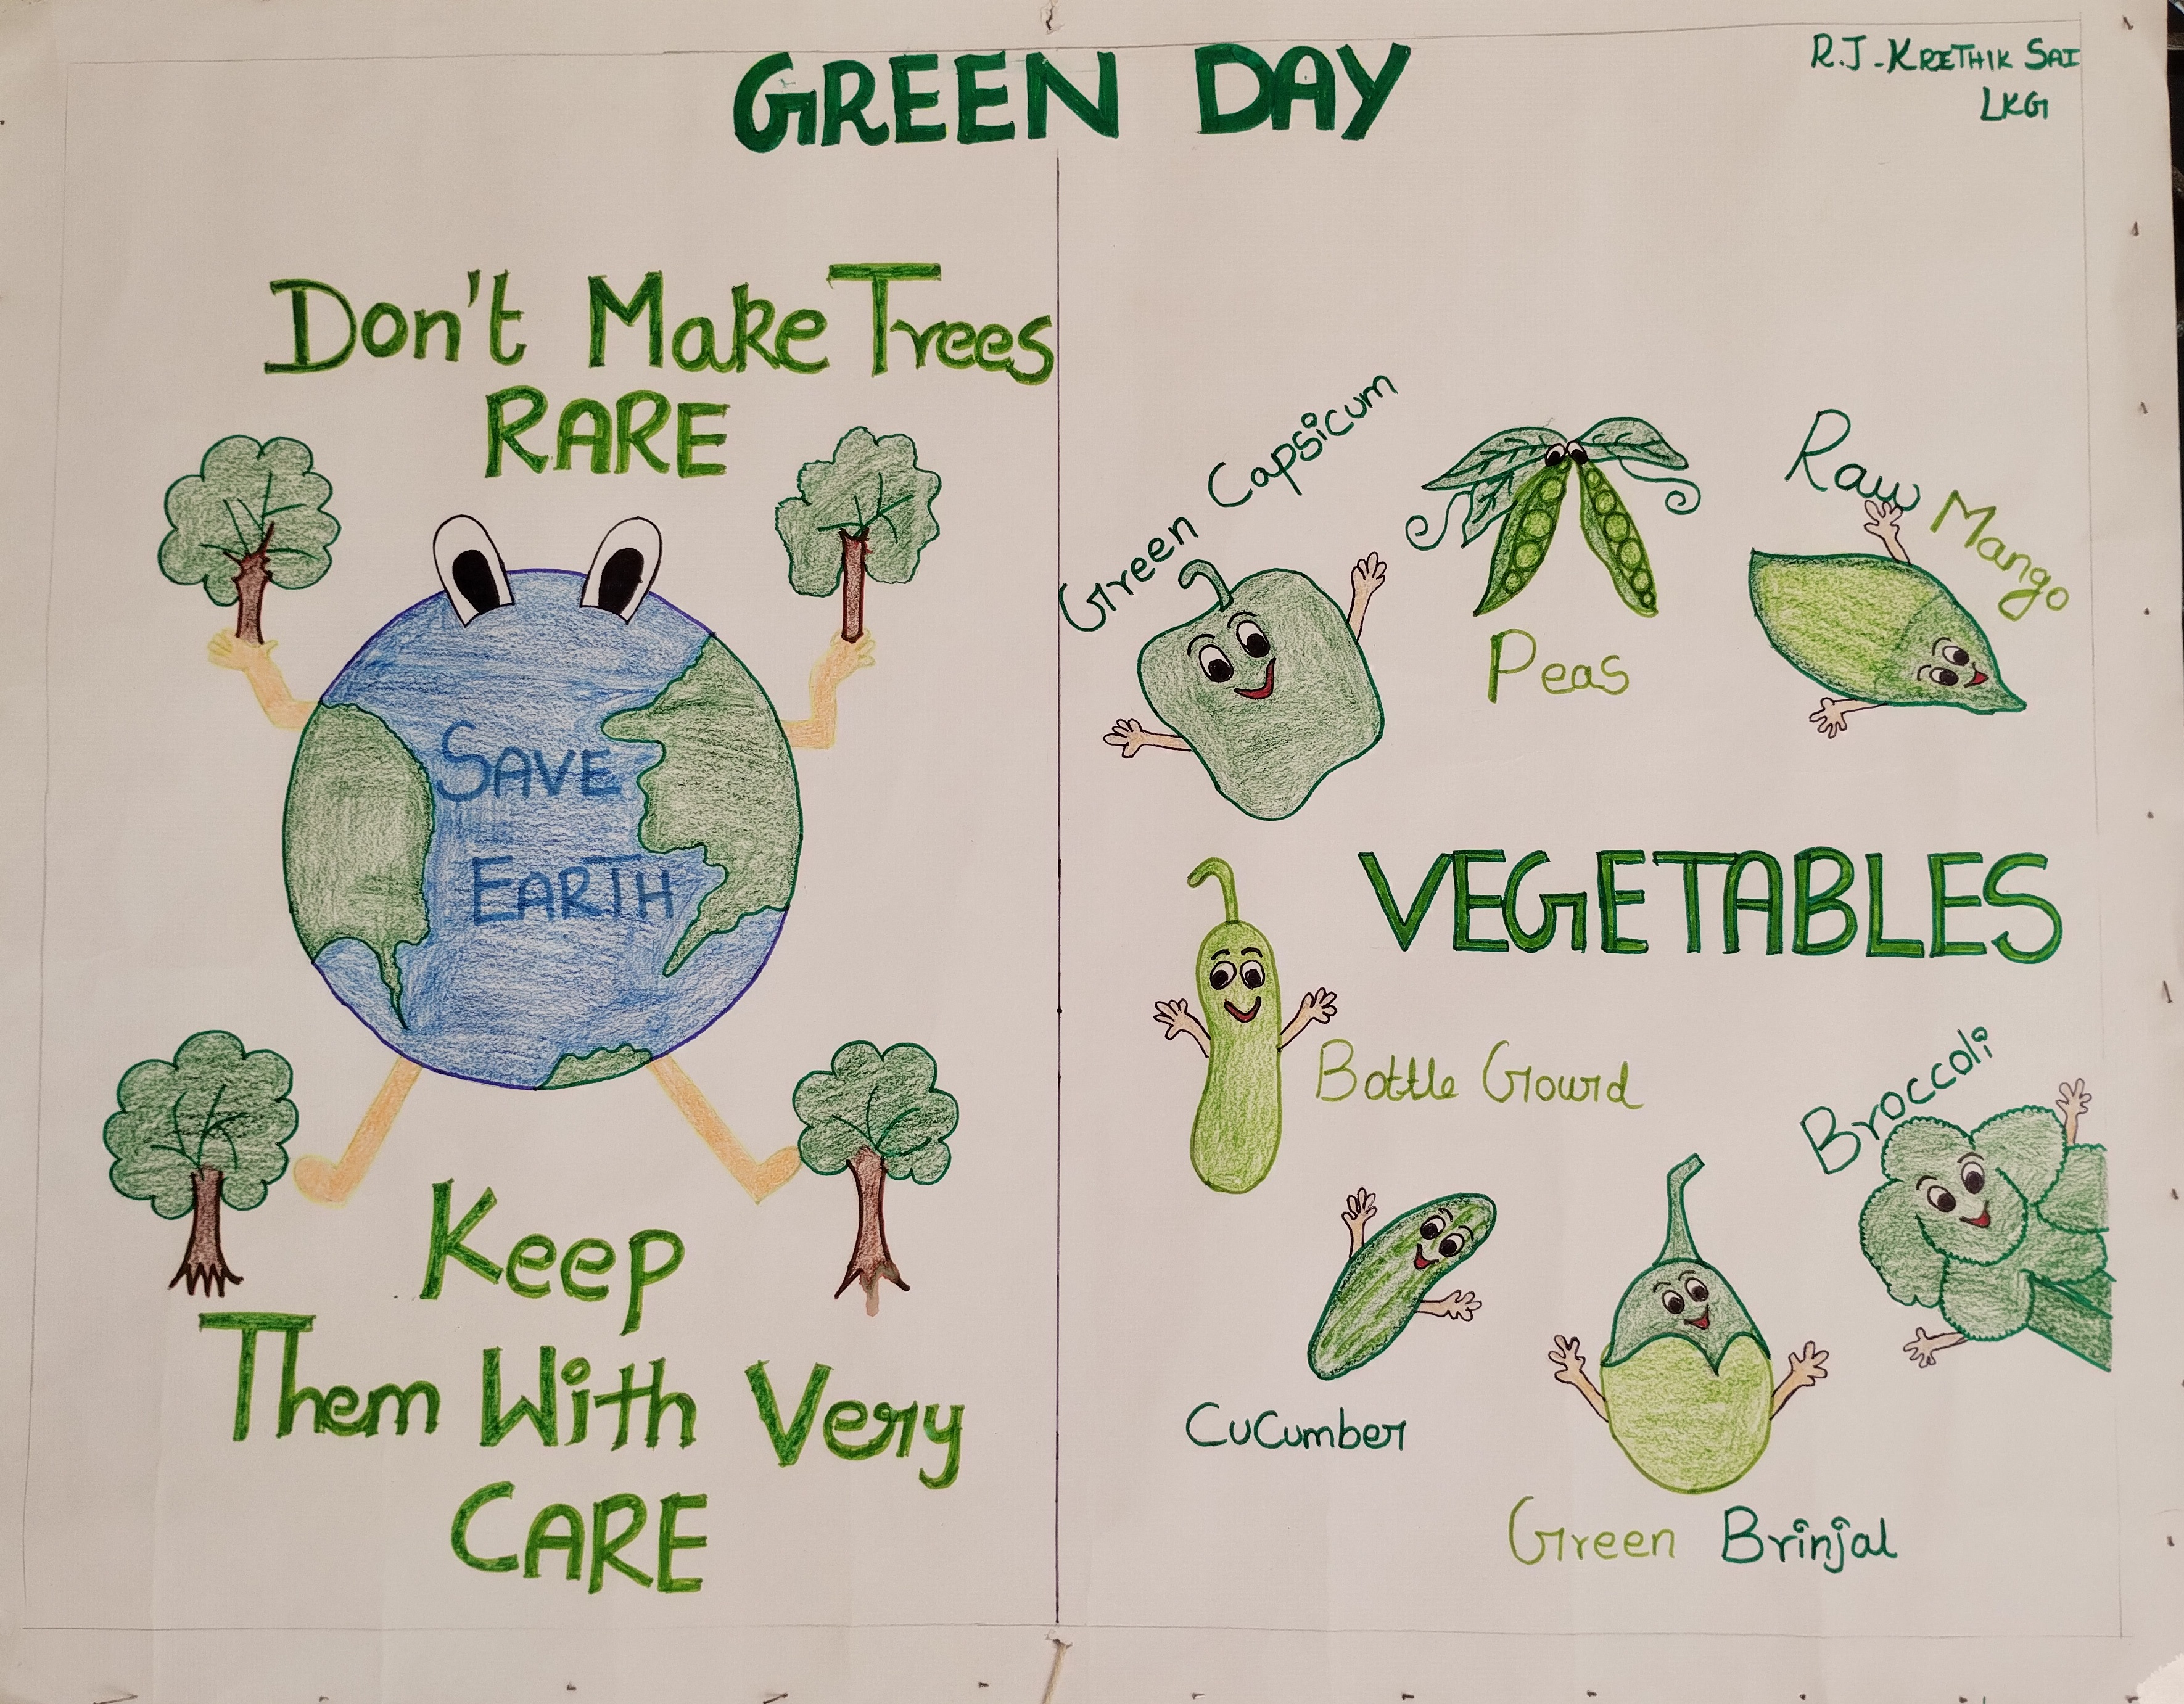 GREEN DAY
R.J-KRITHIK SAI
LKG
Don't Make Trees
RARE
SAVE
EARTH
Keep
Them With Very
CARE
Green Capsicum
Peas
Raw Mango
VEGETABLES
Bottle Gourd
Broccoli
CuCumber
Green Brinjal